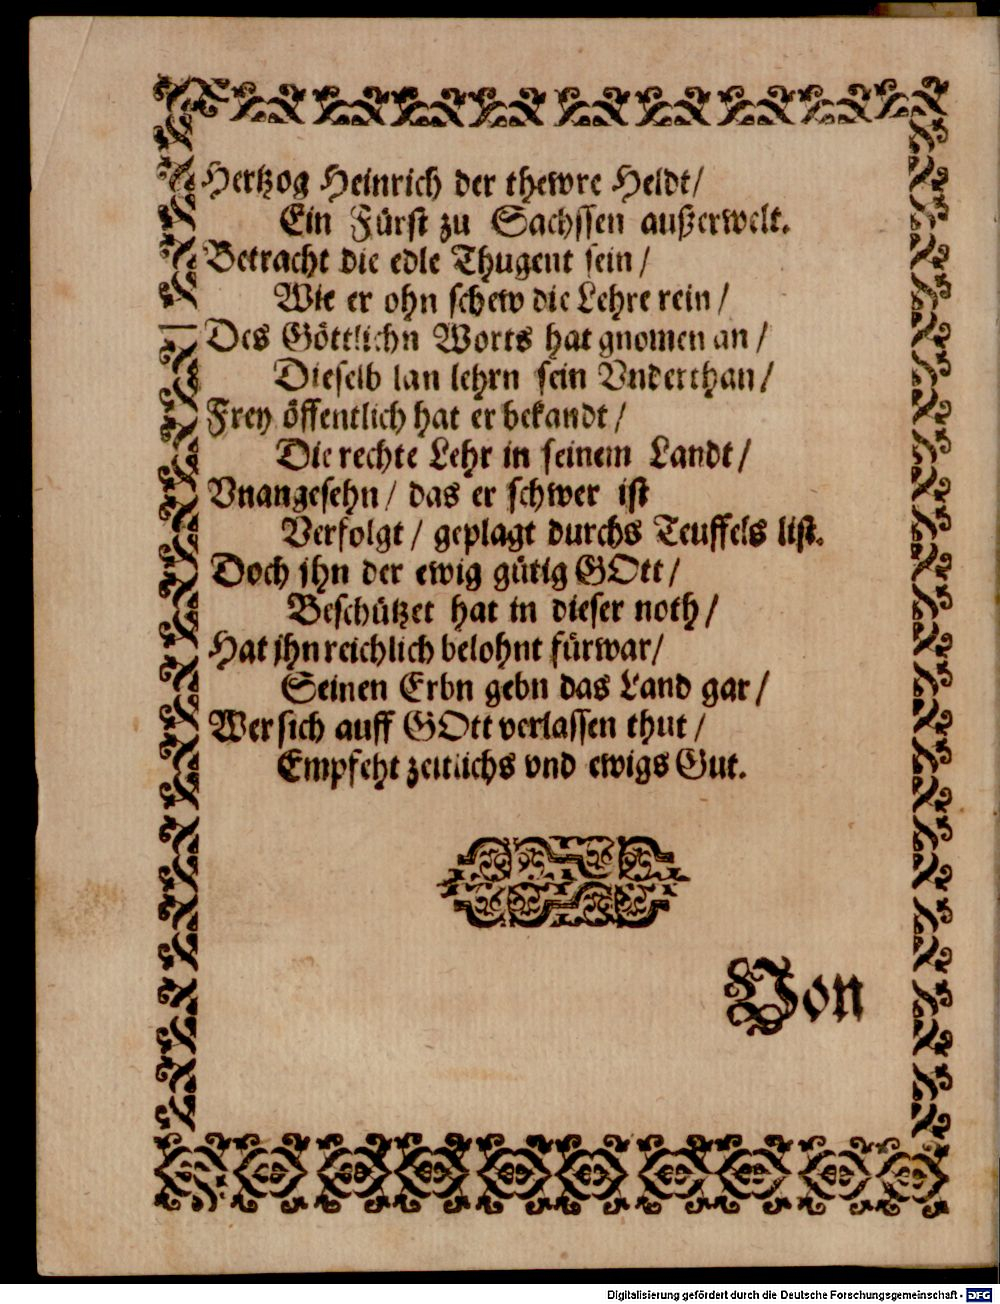 Hertzog Heinrich der thewre Heldt/
Ein Fürst zu Sachssen außerwelt.
Betracht die edle Thugent sein/
Wie er ohn schew die Lehre rein/
Des Göttlichn Worts hat gnomen an/
Dieselb lan lehrn sein Vnderthan/
Frey öffentlich hat er bekandt/
Die rechte Lehr in seinem Landt/
Vnangesehn/ das er schwer ist
Verfolgt/ geplagt durchs Teuffels list.
Doch jhn der ewig gütig GOtt/
Beschützet hat in dieser noth/
Hat jhn reichlich belohnt fürwar/
Seinen Erbn gebn das Land gar/
Wer sich auff GOtt verlassen thut/
Empfeht zeitlichs vnd ewigs Gut.
Von
Digitalisierung gefördert durch die Deutsche Forschungsgemeinschaft - DFG